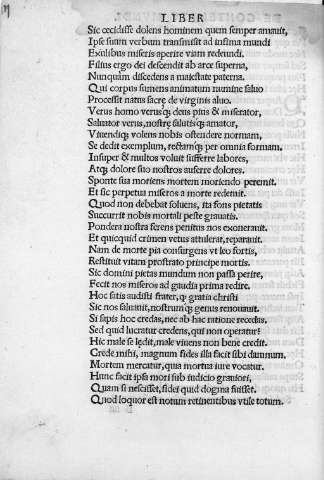 LIBER
Sic cecidisse dolens hominem quem semper amauit,
Ipse suum verbum transmisit ad infima mundi
Exulibus miseris aperire viam redeundi.
Filius ergo dei descendit ab arce superna,
Nunquam discedens a maiestate paterna.
Qui corpus sumens animatum numine saluo
Processit natus sacrę de virginis aluo.
Verus homo verusq; deus pius & miserator,
Saluator verus, nostrę salutisq; amator,
Viuendiq; volens nobis ostendere normam,
Se dedit exemplum, rectamq; per omnia formam.
Insuper & multos voluit sufferre labores,
Atq; dolore suo nostros auferre dolores.
Sponte sua moriens mortem moriendo peremit.
Et sic perpetua miseros a morte redemit.
Quod non debebat soluens, ita fons pietatis
Succurrit nobis mortali peste grauatis.
Pondera nostra ferens penitus nos exonerauit.
Et quicquid crimen vetus attulerat, reparauit.
Nam de morte pia consurgens vt leo fortis,
Restituit vitam prostrato principe mortis.
Sic domini pietas mundum non passa perire,
Fecit nos miseros ad gaudia prima redire.
Hoc satis audisti frater, q̃ gratia christi
Sic nos saluauit, nostrumq; genus renouauit.
Si sapis hoc credas, nec ab hac ratione recedas,
Sed quid lucratur credens, qui non operatur?
Hic male se lędit, male viuens non bene credit.
Crede mihi, magnum fides illa facit sibi damnum.
Mortem mercatur, qua mortua iure vocatur.
Hunc facit ipsa mori sub iudicio grauiori,
Quam si nescisset, fidei quid dogma fuisset.
Quod loquor est notum retinentibus vtile totum.